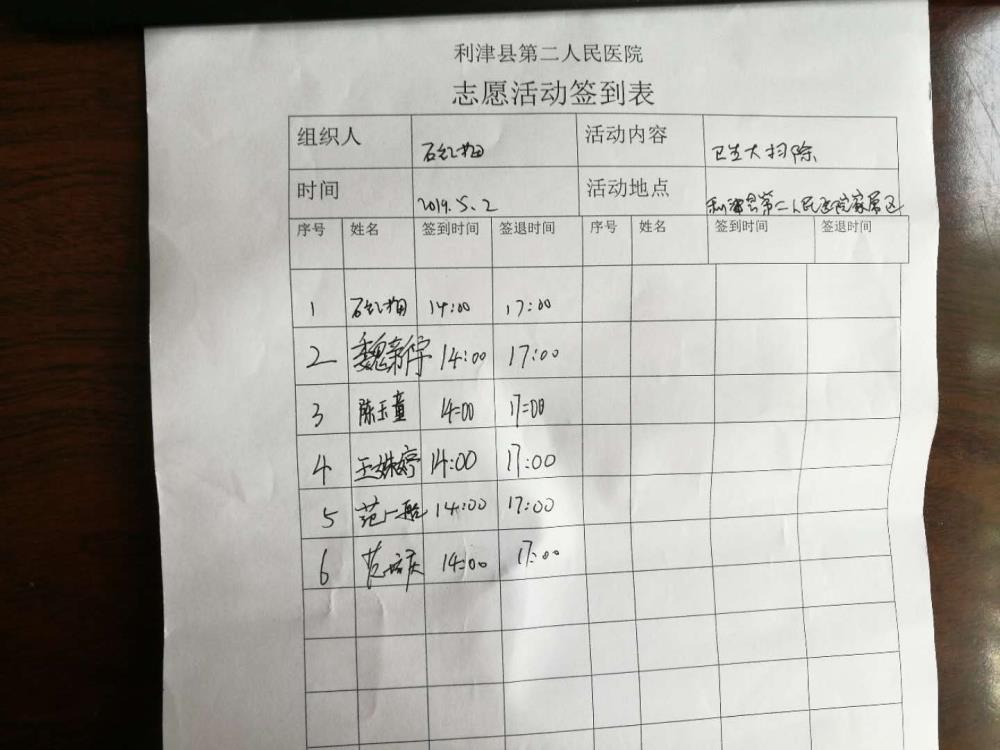 利津县第二人民医院
志愿活动签到表
组织人 石红梅 活动内容 卫生大扫除
时间 2019.5.2 活动地点 利津县第二人民医院家属区
序号 姓名 签到时间 签退时间 序号 姓名 签到时间 签退时间
1 石红梅 14:00 17:00
2 魏新宇 14:00 17:00
3 陈玉童 14:00 17:00
4 王姝婷 14:00 17:00
5 范一船 14:00 17:00
6 14:00 17:00